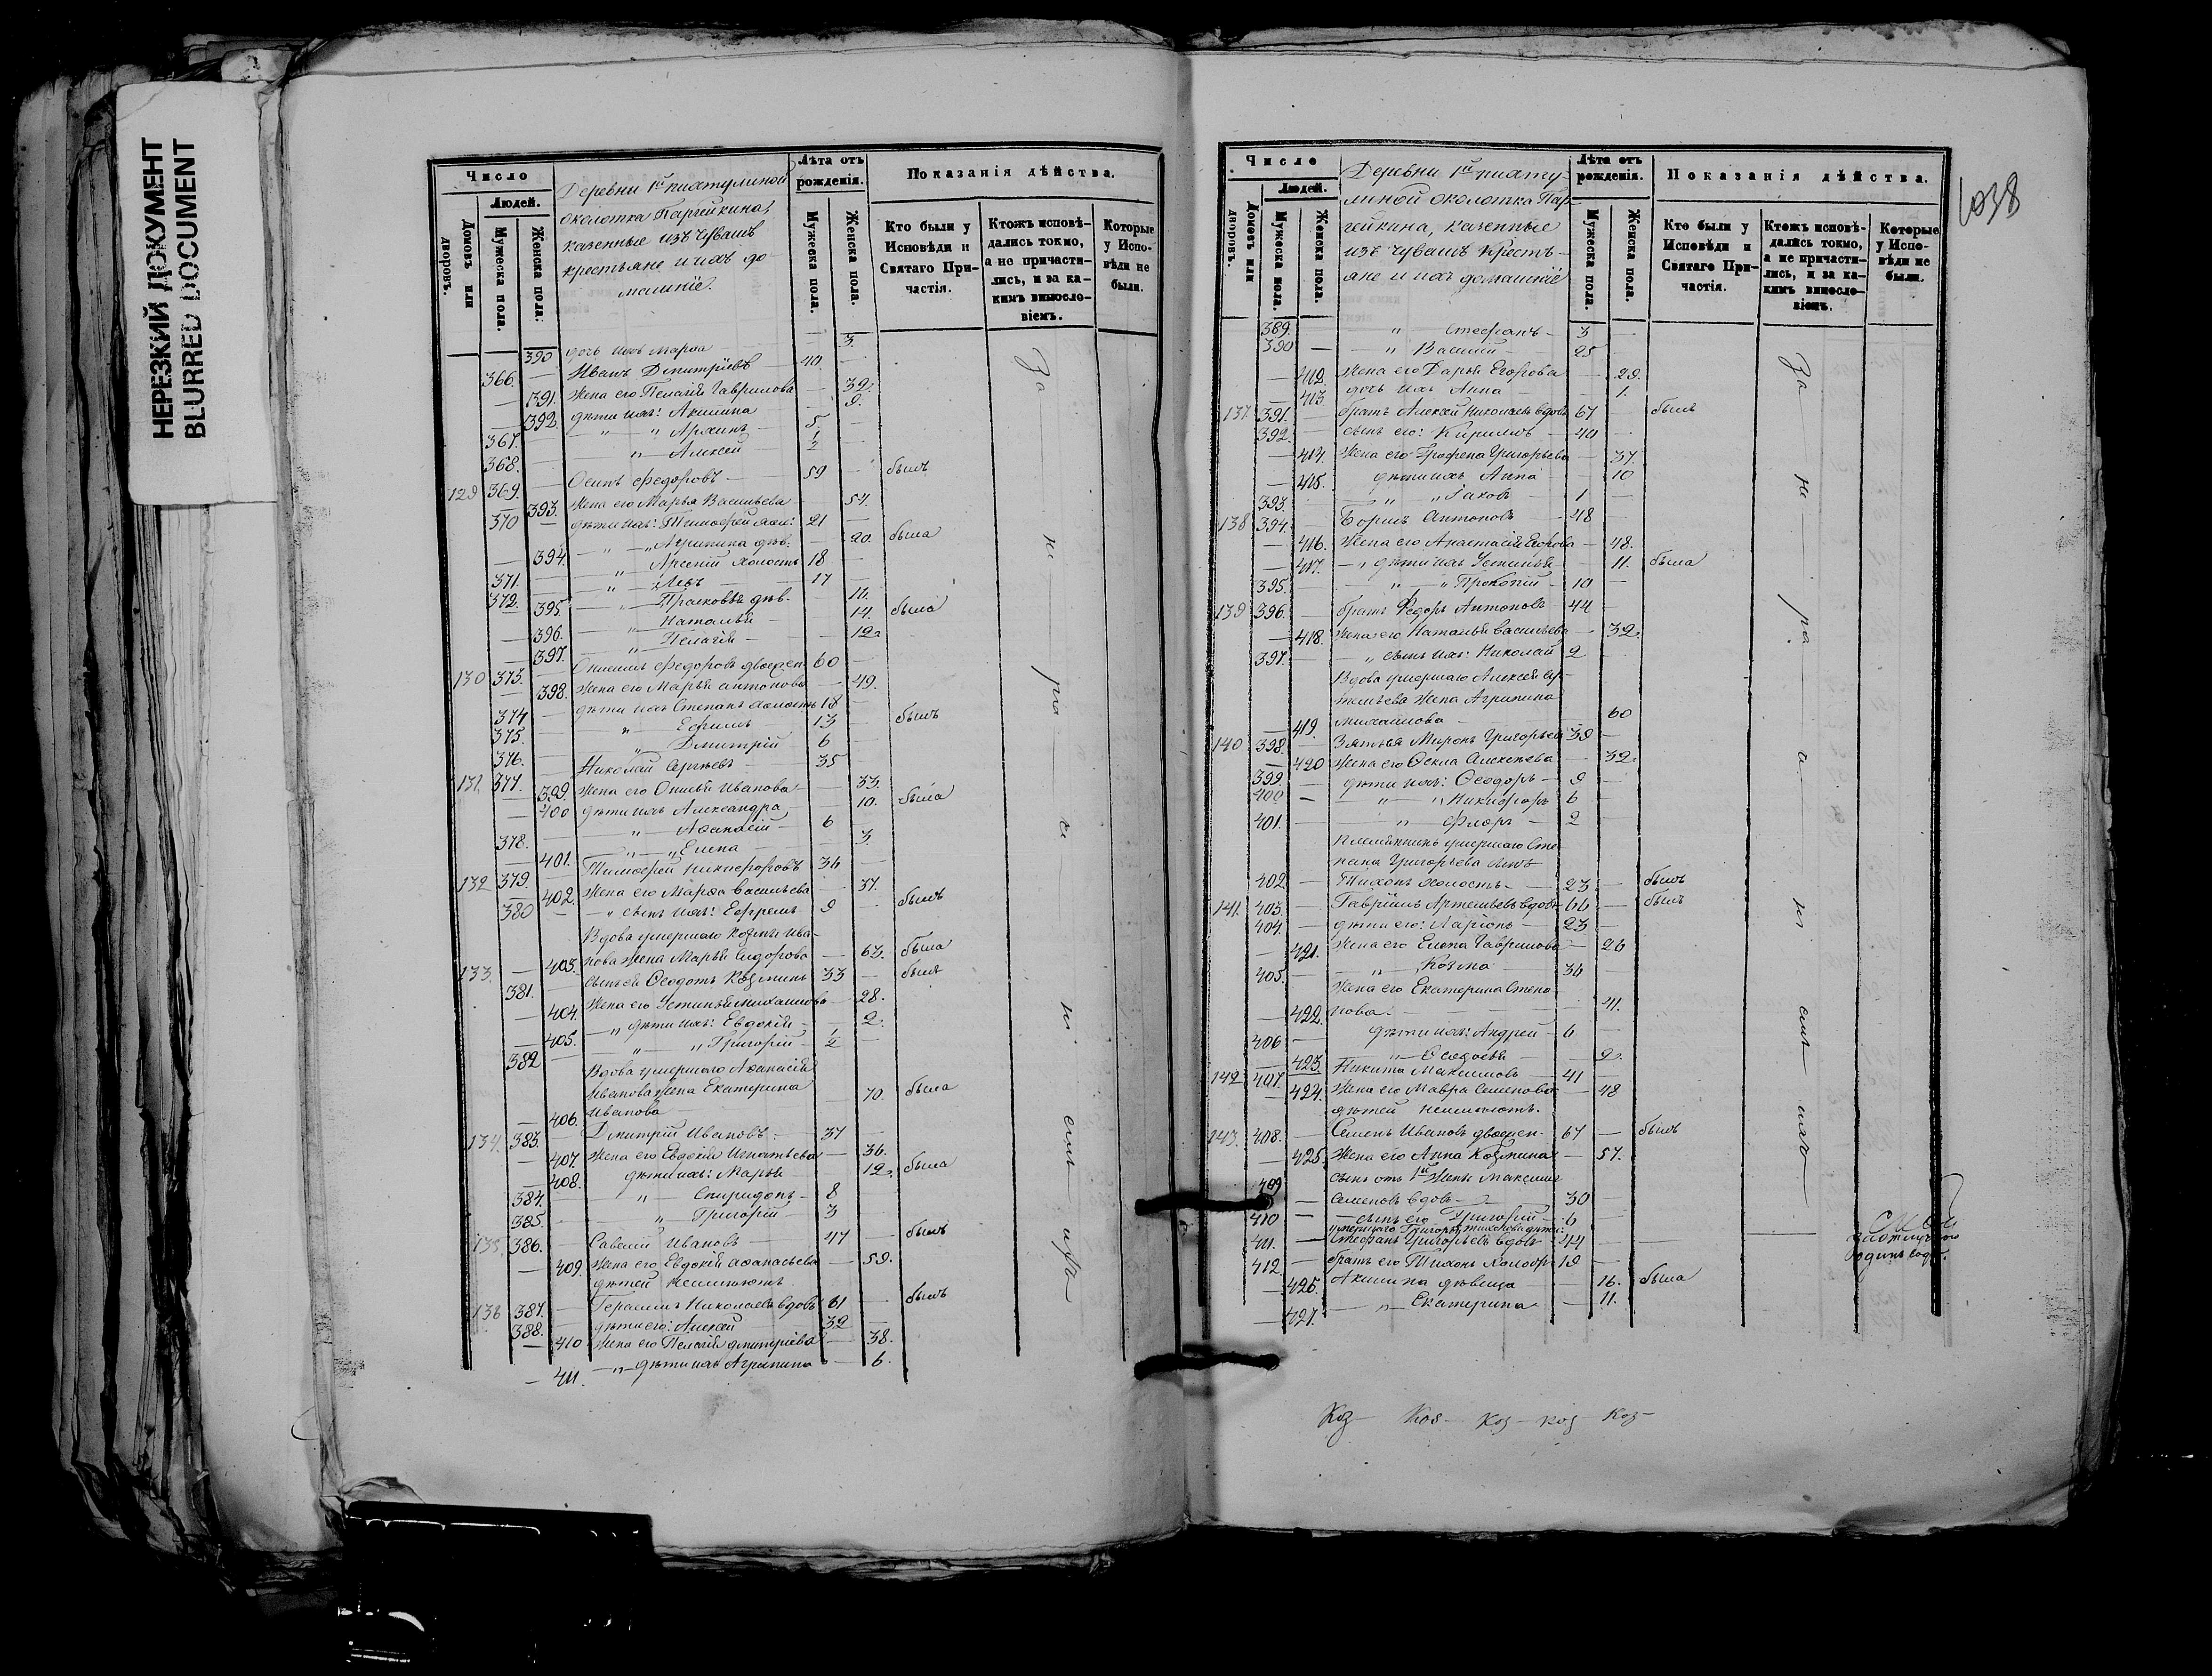 НЕРЕЗКИЙ ДОКУМЕНТ
BLURRED DOCUMENT
Число
Людей.
Домовъ или дворовъ.
Мужеска пола.
Женска пола.
Деревни 1й пиятулиной
околотка Паргейкина,
казенные изъ чувашъ
крестьяне и ихъ до-
машніе.
Лѣта отъ рожденія.
Мужеска пола.
Женска пола.
Показанія дѣйства.
Кто были у Исповѣди и Святаго Причастія.
Ктожъ исповѣдались токмо, а не причастились, и за какимъ винословіемъ.
Которые у Исповѣди не были.
390 дочь ихъ Марѳа 3.
366. Иванъ Дмитріевъ 40.
391. Жена его Пелагія Гаврилова 39.
392. дѣти ихъ: Акилина 9.
367. " " Архипъ 5.
368. " Алексей 1/2
129 369. Осипъ Федоровъ 59 былъ
393. Жена его Марья Васильева 54.
370 дѣти ихъ: Тимофей 21
394. " Агрипина дѣв. 20. была
371. " Арсеній холостъ 18
372. " Левъ 17
395. " Прасковья дѣв. 16.
396. " Наталья 14. была
397. " Пелагія 12.
130 373. Онисимъ Федоровъ двоежен. 60
398. Жена его Марья Антонова 49.
374 дѣти ихъ Степанъ холостъ 18
375. " Ефимъ 13 былъ
376. " Дмитрій 6
131. 377. Николай Сергѣевъ 35
399 Жена его Онисья Иванова 33.
400 дѣти ихъ Александра 10. была
378. " Аѳанасій 6
401. " Елена 3.
132 379. Тимофей Никифоровъ 36
402. Жена его Марѳа Васильева 37.
380 " сынъ ихъ: Ефремъ 9 былъ
Вдова умершаго Козмы Ива-
133. 403. нова жена Марья Сидорова 63. была
381. сынъ ея Ѳеодотъ Козминъ 33 былъ
404. Жена его Устинья Михаилова 28.
405. " дѣти ихъ: Евдокія 2.
382 " " Григорій 1/2
Вдова умершаго Аѳанасія
Иванова жена Екатерина
406. Иванова 70. была
134. 383. Дмитрій Ивановъ 37
407. Жена его Евдокія Игнатьева 36.
408. дѣти ихъ: Марья 12. была
384. " Спиридонъ 8
385. " Григорій 3
135. 386. Савелій Ивановъ 47 былъ
409. Жена его Евдокія Аѳанасьева 59.
дѣтей неимѣютъ
136 387. Герасимъ Николаевъ вдовъ 61 былъ
388. дѣти его: Алексей 32
410 Жена его Пелагія Дмитріева 38.
411. " дѣти ихъ Агрипина 6.
За не ра че ні емъ
1038
Число
Людей.
Домовъ или дворовъ.
Мужеска пола.
Женска пола.
Деревни 1й пияту-
линой околотка Пар-
гейкина, казенные
изъ чувашъ кресть-
яне и ихъ домашніе
Лѣта отъ рожденія.
Мужеска пола.
Женска пола.
Показанія дѣйства.
Кто были у Исповѣди и Святаго Причастія.
Ктожъ исповѣдались токмо, а не причастились, и за какимъ винословіемъ.
Которые у Исповѣди не были.
389. " Стефанъ 3
390 " Василій 25
412. Жена его Дарья Егорова 29.
413. дочь ихъ Анна 1.
137 391. братъ Алексей Николаевъ вдовъ 67 былъ
392. сынъ его: Кириллъ 40
414. Жена его Графена Григорьева 37.
415. дѣти ихъ Анна 10
393. " " Іаковъ 1
138 394. Борисъ Антоновъ 48
416. Жена его Анастасія Егорова 48.
417. " дѣти ихъ Устинья 11. была
395. " " Прокопій 10
139 396. братъ Федоръ Антоновъ 44
418. Жена его Наталья Васильева 32.
397. " сынъ ихъ: Николай 2
Вдова умершаго Алексея Ар-
темьева жена Агрипина
419. Михаилова 60
140 398. Зятья Миронъ Григорьевъ 39
420 Жена его Ѳекла Алексеева 32.
399 дѣти ихъ: Ѳеодоръ 9
400 " " Никифоръ 6
401. " Флоръ 2
Племянникъ умершаго Сте-
пана Григорьева
402. Тихонъ холостъ 23 былъ
141. 403. Гавріилъ Артемьевъ вдовъ 66 былъ
404. дѣти его: Ларіонъ 23
421. Жена его Елена Гаврилова 26
405. " Козма 36
Жена его Екатерина Степа-
422. нова. 41.
406 дѣти ихъ: Андрей 6
423. " Ѳедосья 2.
142 407. Никита Максимовъ 41
424. Жена его Мавра Семенова 48
дѣтей неимѣютъ.
143. 408. Семенъ Ивановъ двоежен. 67 былъ
425. Жена его Анна Козмина 57.
сынъ отъ 1й жены Максимъ
409 Семеновъ вдовъ 30
410 сынъ его Григорій 6
умершаго Григорья Тихонова дѣти:
411. Стефанъ Григорьевъ вдовъ 44
412 братъ его Тихонъ 19
426. Акилина дѣвица 16. была
427. " Екатерина 11.
За не ра че ні емъ
Коз- Коз- Коз- Коз- Коз-